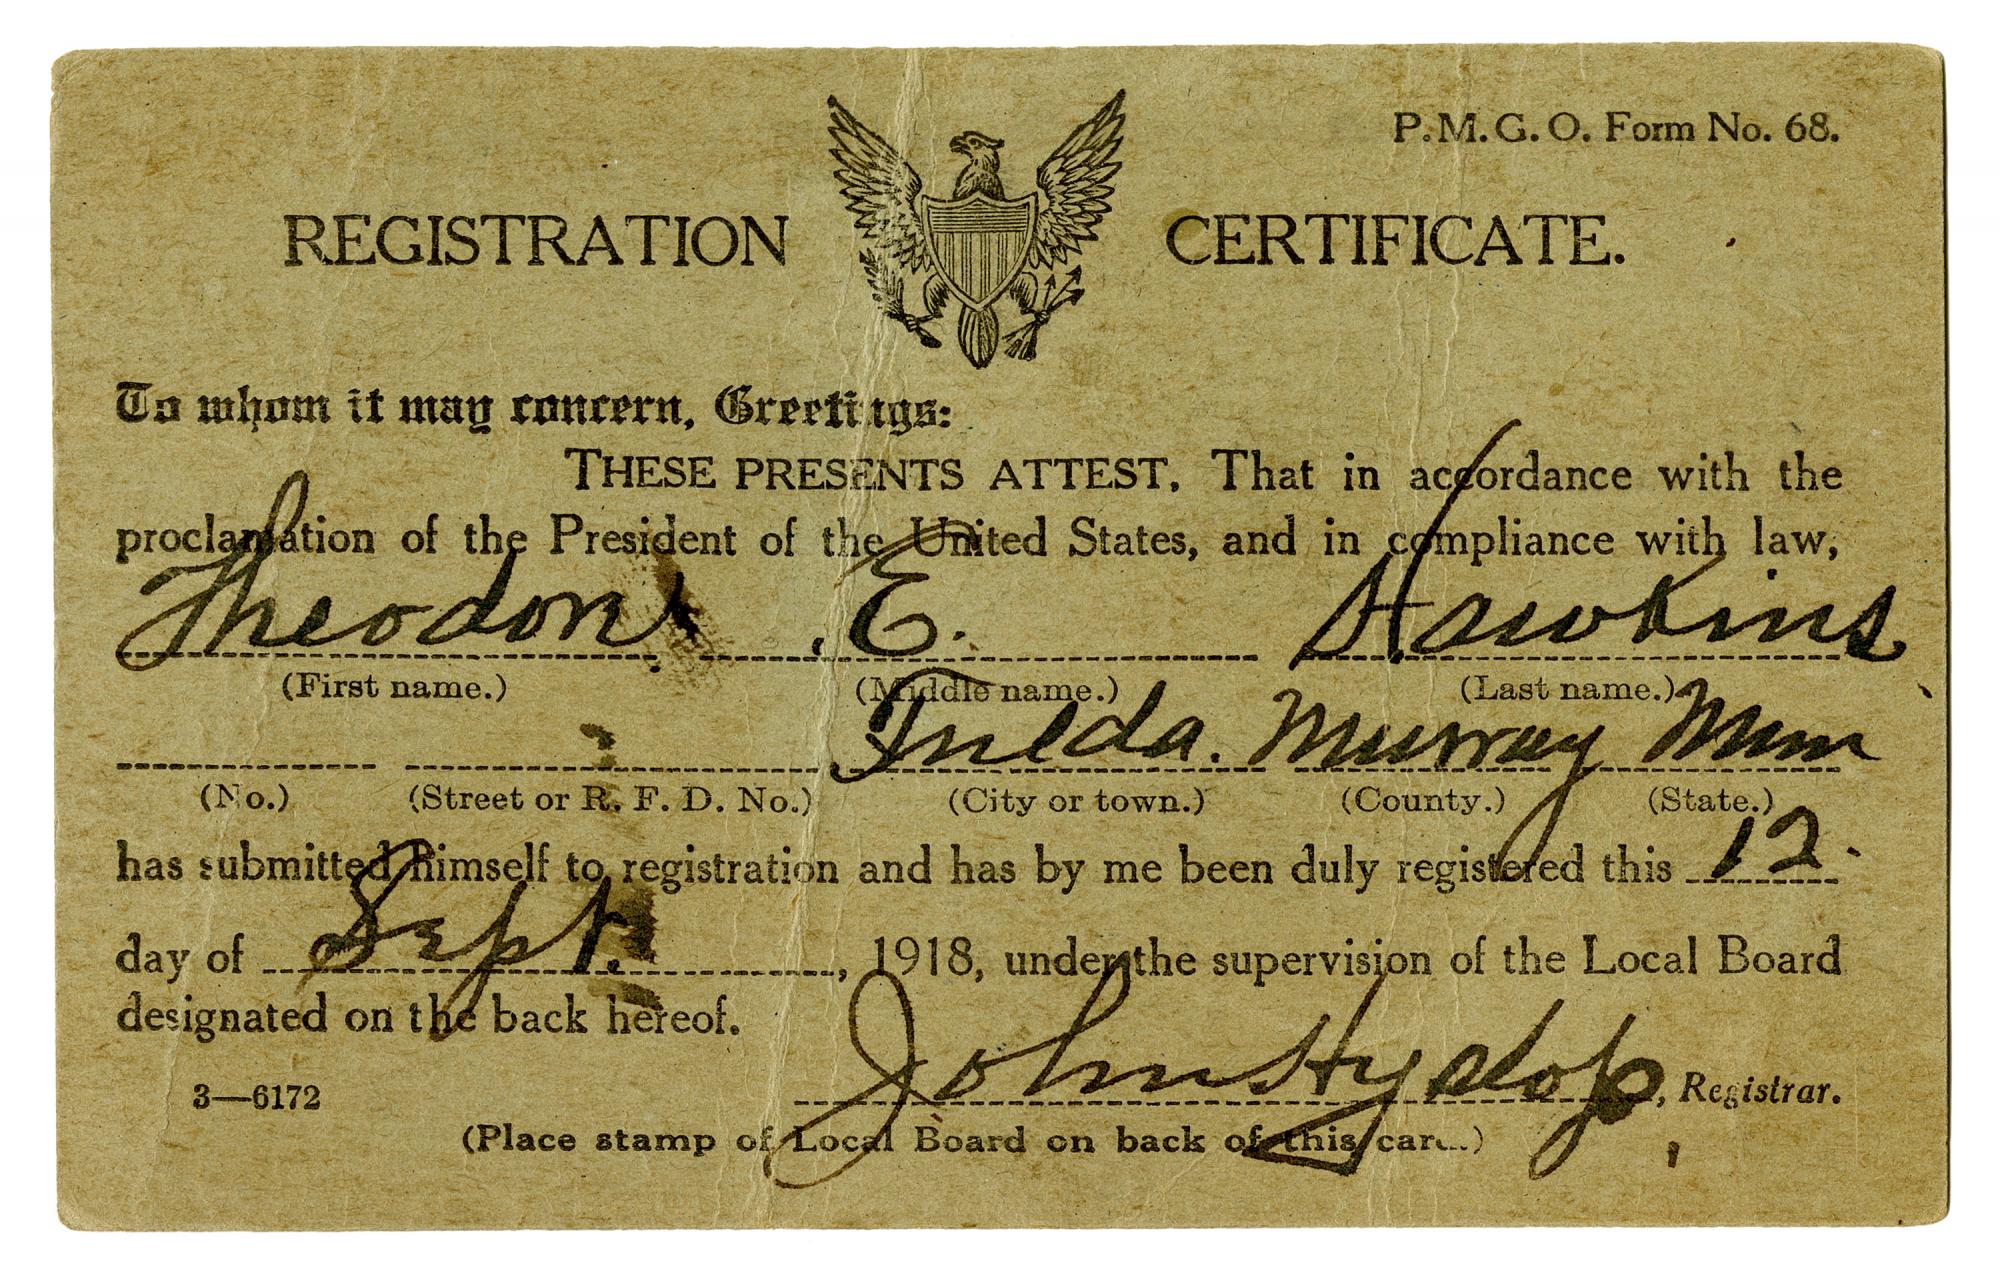 P.M.G.O. Form No. 68.
REGISTRATION CERTIFICATE.
To whom it may concern, Greetings:
THESE PRESENTS ATTEST, That in accordance with the
proclamation of the President of the United States, and in compliance with law,
Theodore E. Hawkins
(First name.) (Middle name.) (Last name.)
Murray Minn
(No.) (Street or R. F. D. No.) (City or town.) (County.) (State.)
has submitted himself to registration and has by me been duly registered this 12
day of Sept., 1918, under the supervision of the Local Board
designated on the back hereof.
John Hyslop, Registrar.
3—6172
(Place stamp of Local Board on back of this card.)